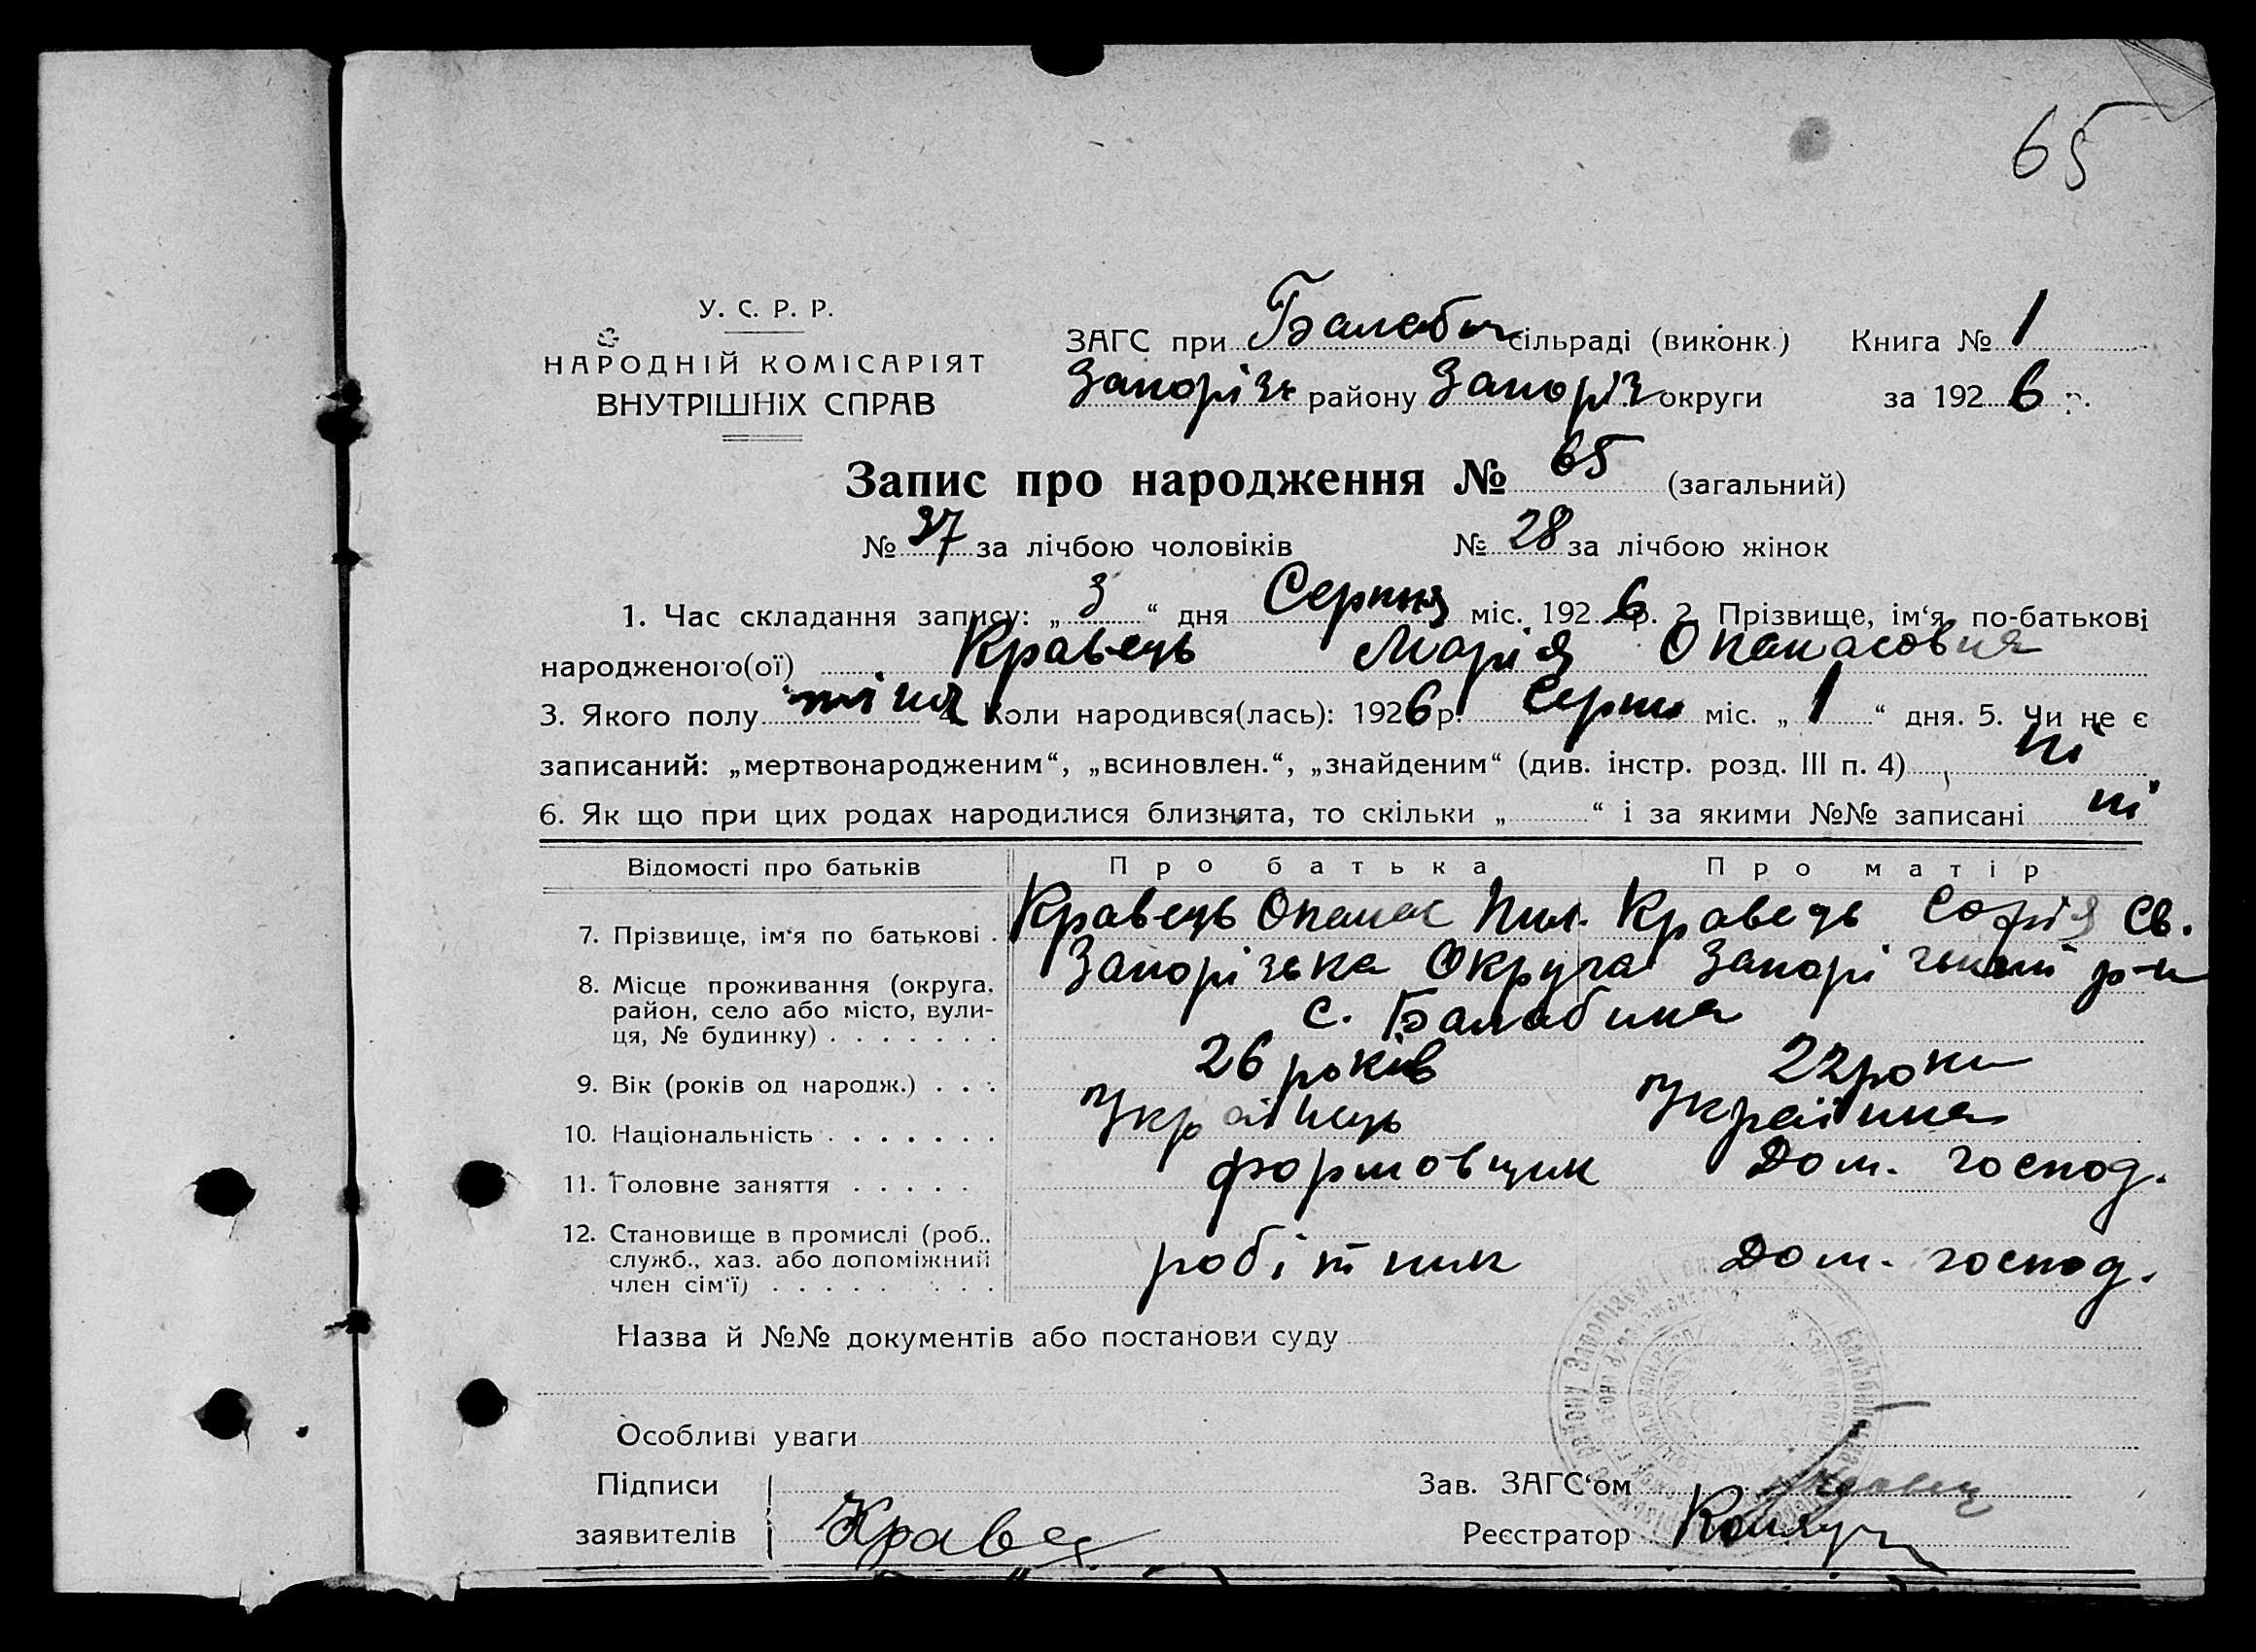 65
У. С. Р. Р.
НАРОДНІЙ КОМІСАРІЯТ
ВНУТРІШНІХ СПРАВ
ЗАГС при Балабин сільраді (виконк.) Книга № 1
Запоріз району Запоріз округи за 1926 р.
Запис про народження № 65 (загальний)
№ 37 за лічбою чоловіків № 28 за лічбою жінок
1. Час складання запису: „ 3 “ дня Серпня міс. 1926 р. 2. Прізвище, ім‘я, по-батькові
народженого(ої) Кравець Марія Опанасовна
3. Якого полу 4. Коли народився(лась): 1926 р. Серпня міс. „ 1 “ дня. 5. Чи не є
записаний: „мертвонародженим“, „всиновлен.“, „знайденим“ (див. інстр. розд. III п. 4) ні
6. Як що при цих родах народилися близнята, то скільки „ “ і за якими №№ записані ні
Відомості про батьків Про батька Про матір
7. Прізвище, ім‘я по батькові . Кравець Опанас Пил. Кравець Софія Св.
8. Місце проживання (округа, Запорізька Округа Запорізький р-н
район, село або місто, вули-
ця, № будинку) . . . . . . . с. Балабина
9. Вік (років од народж.) . . . 26 років 22 роки
10. Національність . . . . . . . Українець Українка
11. Головне заняття . . . . . формовщик Дом. господ.
12. Становище в промислі (роб.,
служб., хаз. або допоміжний робітник Дом. господ.
член сім‘ї) . . . . . . . .
Назва й №№ документів або постанови суду
Особливі уваги
Підписи Зав. ЗАГС‘ом
заявителів Кравец Реєстратор